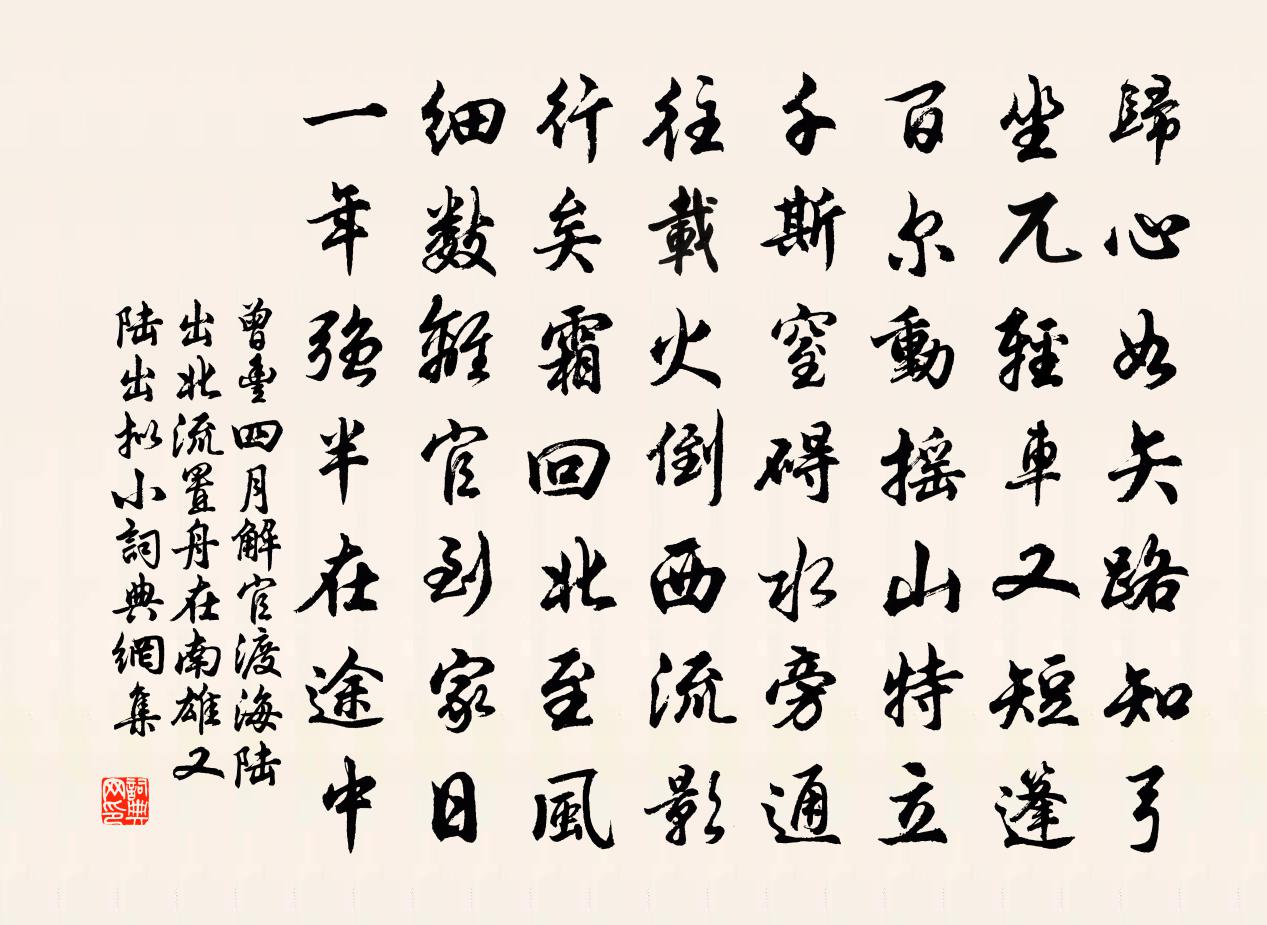 歸心如矢路知弓
坐兀輕車又短篷
百尔動摇山特立
千斯窒碍水旁通
往載火倒西流影
行矣霜回北至風
细数離官到家日
一年强半在途中
曾豊四月解官渡海陆
出北流置舟在南雄又
陆出拟小詞典網集
詞典
网印